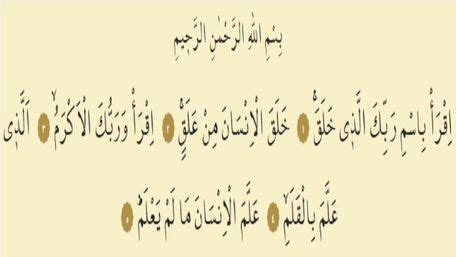 بِسْمِ اللهِ الرَّحْمٰنِ الرَّحِيمِ
اِقْرَأْ بِاسْمِ رَبِّكَ الَّذِى خَلَقَۚ ١ خَلَقَ الْاِنْسَانَ مِنْ عَلَقٍۚ ٢ اِقْرَأْ وَرَبُّكَ الْاَكْرَمُۙ ٣ اَلَّذِى
عَلَّمَ بِالْقَلَمِۙ ٤ عَلَّمَ الْاِنْسَانَ مَا لَمْ يَعْلَمْۜ ٥